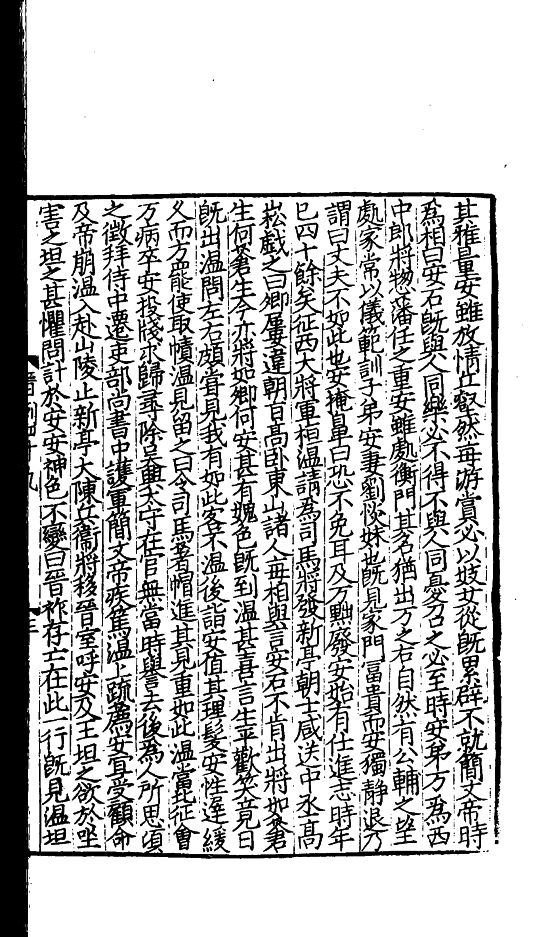 其雅量安雖放情丘壑然每游賞必以妓女從旣累辟不就簡文帝時
為相曰安石旣與人同樂必不得不與人同憂召之必至時安弟万為西
中郎將揔藩任之重安雖處衡門其名猶出万之右自然有公輔之望
處家常以儀範訓子弟安妻劉惔妹也旣見家門冨貴而安獨靜退乃
謂曰丈夫不如此也安掩鼻曰恐不免耳及万黜廢安始有仕進志時年
已四十餘矣征西大將軍桓温請為司馬將發新亭朝士咸送中丞髙
崧戲之曰卿屢違朝旨髙卧東山諸人每相與言安石不肯出將如蒼
生何蒼生今亦將如卿何安甚有媿色旣到温甚喜言生平歡笑竟日
旣出温問左右頗甞見我有如此客不温後詣安值其理髮安性遲緩
久而方罷使取幘温見留之曰令司馬著帽進其見重如此温當北征會
万病卒安投牋求歸尋除吳興太守在官無當時譽去後為人所思頃
之徵拜侍中遷吏部尚書中護軍簡文帝疾篤温上疏薦安宜受顧命
及帝崩温入赴山陵止新亭大陳兵衞將移晉室呼安及王坦之欲於坐
害之坦之甚懼問計於安安神色不變曰晉祚存亡在此一行旣見温坦